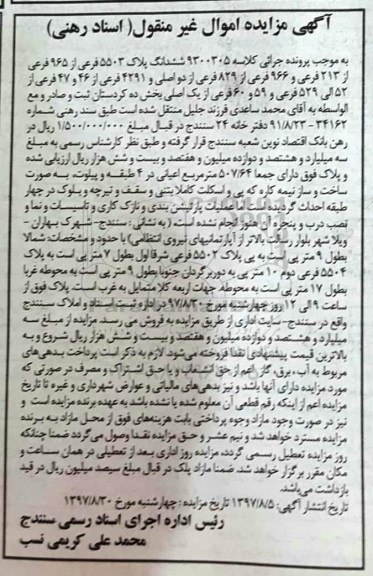 آگهی مزایده اموال غیر منقول( اسناد رهنی)
به موجب پرونده اجرائی کلاسه ۹۳۰۰۳۰۵ ششدانگ پلاک ۵۵۰۳ فرعی از ۹۶۵ فرعی
از ۲۱۳ فرعی و ۹۶۶ فرعی از ۸۲۹ فرعی از دو اصلی و ۴۲۹۱ فرعی از ۴۶ و ۴۷ فرعی از
۵۲ الی ۵۲۹ فرعی و ۵۹ و ۶۰ فرعی از یک اصلی بخش ده کردستان ثبت و صادر و مع
الواسطه به آقای محمد ساعدی فرزند جلیل منتقل شده است طبق سند رهنی شماره
۳۴۱۶۲ - ۹۱/۸/۲۳ دفتر خانه ۲۴ سنندج در قبال مبلغ ۱/۵۰۰/۰۰۰/۰۰۰ ریال در
رهن بانک اقتصاد نوین شعبه سنندج قرار گرفته و طبق نظر کارشناس رسمی به مبلغ
سه میلیارد و هشتصد و دوازده میلیون و هفتصد و بیست و شش هزار ریال ارزیابی شده
و پلاک فوق دارای جمعا ۵۰۷/۶۴ مترمربع اعیانی در ۴ طبقه و پیلوت، به صورت
ساخت و ساز نیمه کاره که پی و اسکلت کاملا بتنی و سقف و تیرچه و بلوک در چهار
طبقه احداث گردیده است عملیات پارتیشن بندی و نازک کاری و تاسیسات و نما و
نصب درب و پنجره آن هنوز انجام نشده است، (به نشانی : سنندج- شهرک بهاران -
ویلا شهر بلوار رسالت بالاتر از آپارتمانهای نیروی انتظامی) با حدود و مشخصات: شمالا
بطول ۹ متر پی است به پی پلاک ۵۵۰۲ فرعی شرقا اول بطول ۷ متر پی است به پلاک
۵۵۰۴ فرعی دوم ۱۰ متر پی به دوربرگردان جنوبا بطول ۹ متر پی است به محوطه غربا
بطول ۱۷ متر پی است به محوطه. جهات اربعه کلا متمایل به غرب است. پلاک فوق از
ساعت ۹ الی ۱۲ روز چهارشنبه مورخ ۹۷/۸/۳۰ در اداره ثبت اسناد و املاک سنندج
واقع در سنندج- سایت اداری از طریق مزایده به فروش می رسد. مزایده از مبلغ سه
میلیارد و هشتصد و دوازده میلیون و هفتصد و بیست و شش هزار ریال شروع و به
بالاترین قیمت پیشنهادی نقدا فروخته می‌شود. لازم به ذکر است پرداخت بدهی‌های
مربوط به آب، برق، گاز، اعم از حق انشعاب و یا حق اشتراک و مصرف در صورتی که
مورد مزایده دارای آنها باشد و نیز بدهی‌های مالیاتی و عوارض شهرداری و غیره تا تاریخ
مزایده اعم از اینکه رقم قطعی آن معلوم شده یا نشده باشد به عهده برنده مزایده است و
نیز در صورت وجود مازاد وجوه پرداختی بابت هزینه‌های فوق از محل مازاد به برنده
مزایده مسترد خواهد شد و نیم عشر و حق مزایده نقدا وصول می‌گردد ضمنا چنانکه
روز مزایده تعطیل رسمی گردد، مزایده روز اداری بعد از تعطیلی در همان ساعت و
مکان مقرر برگزار خواهد شد. ضمنا مازاد پلک در قبال مبلغ سیصد میلیون ریال در قید
بازداشت می‌باشد.
تاریخ انتشار آگهی: ۱۳۹۷/۸/۵ تاریخ مزایده : چهارشنبه مورخ ۱۳۹۷/۸/۳۰
رئیس اداره اجرای اسناد رسمی سنندج
محمد علی کریمی نسب